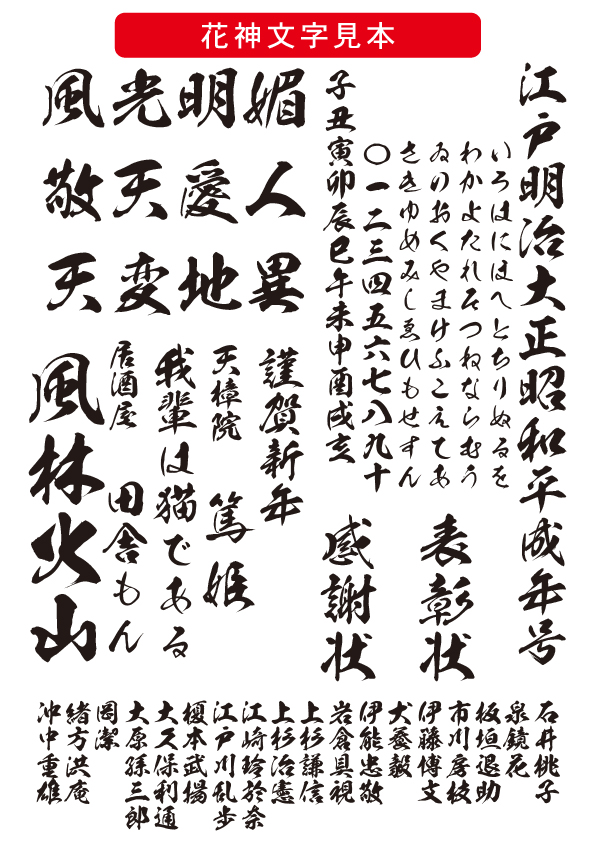 花神文字見本
江戸明治大正昭和平成年号
いろはにほへとちりぬるを
わかよたれそつねならむう
ゐのおくやまけふこえてあ
さきゆめみしゑひもせすん
〇一二三四五六七八九十
子丑寅卯辰巳午未申酉戌亥
表彰状
感謝状
風光明媚
敬天愛人
天変地異
謹賀新年
天樟院 篤姫
我輩は猫である
居酒屋 田舎もん
風林火山
石井桃子
泉鏡花
板垣退助
市川房枝
伊藤博文
犬養毅
伊能忠敬
岩倉具視
上杉謙信
上杉治憲
江崎玲於奈
江戸川乱歩
榎本武揚
大久保利通
大原孫三郎
岡潔
緒方洪庵
沖中重雄